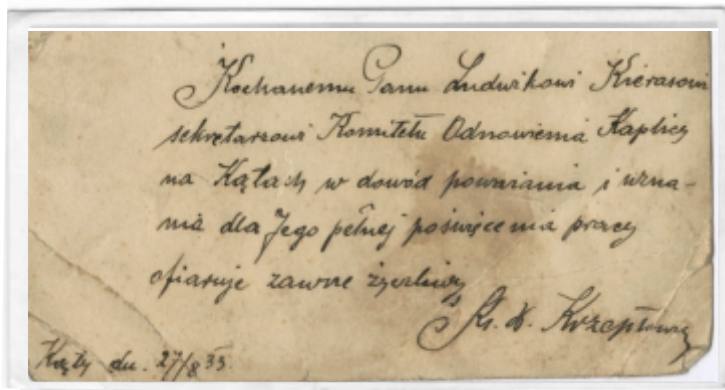 Kochanemu Panu Ludwikowi Kierasowi
sekretarzowi Komitetu Odnowienia Kaplicy
na Kątach w dowód poważania i uzna-
nia dla Jego pełnej poświęcenia pracy
ofiaruje zawsze życzliwy
Ks.
Kąty dn. 27/8 35